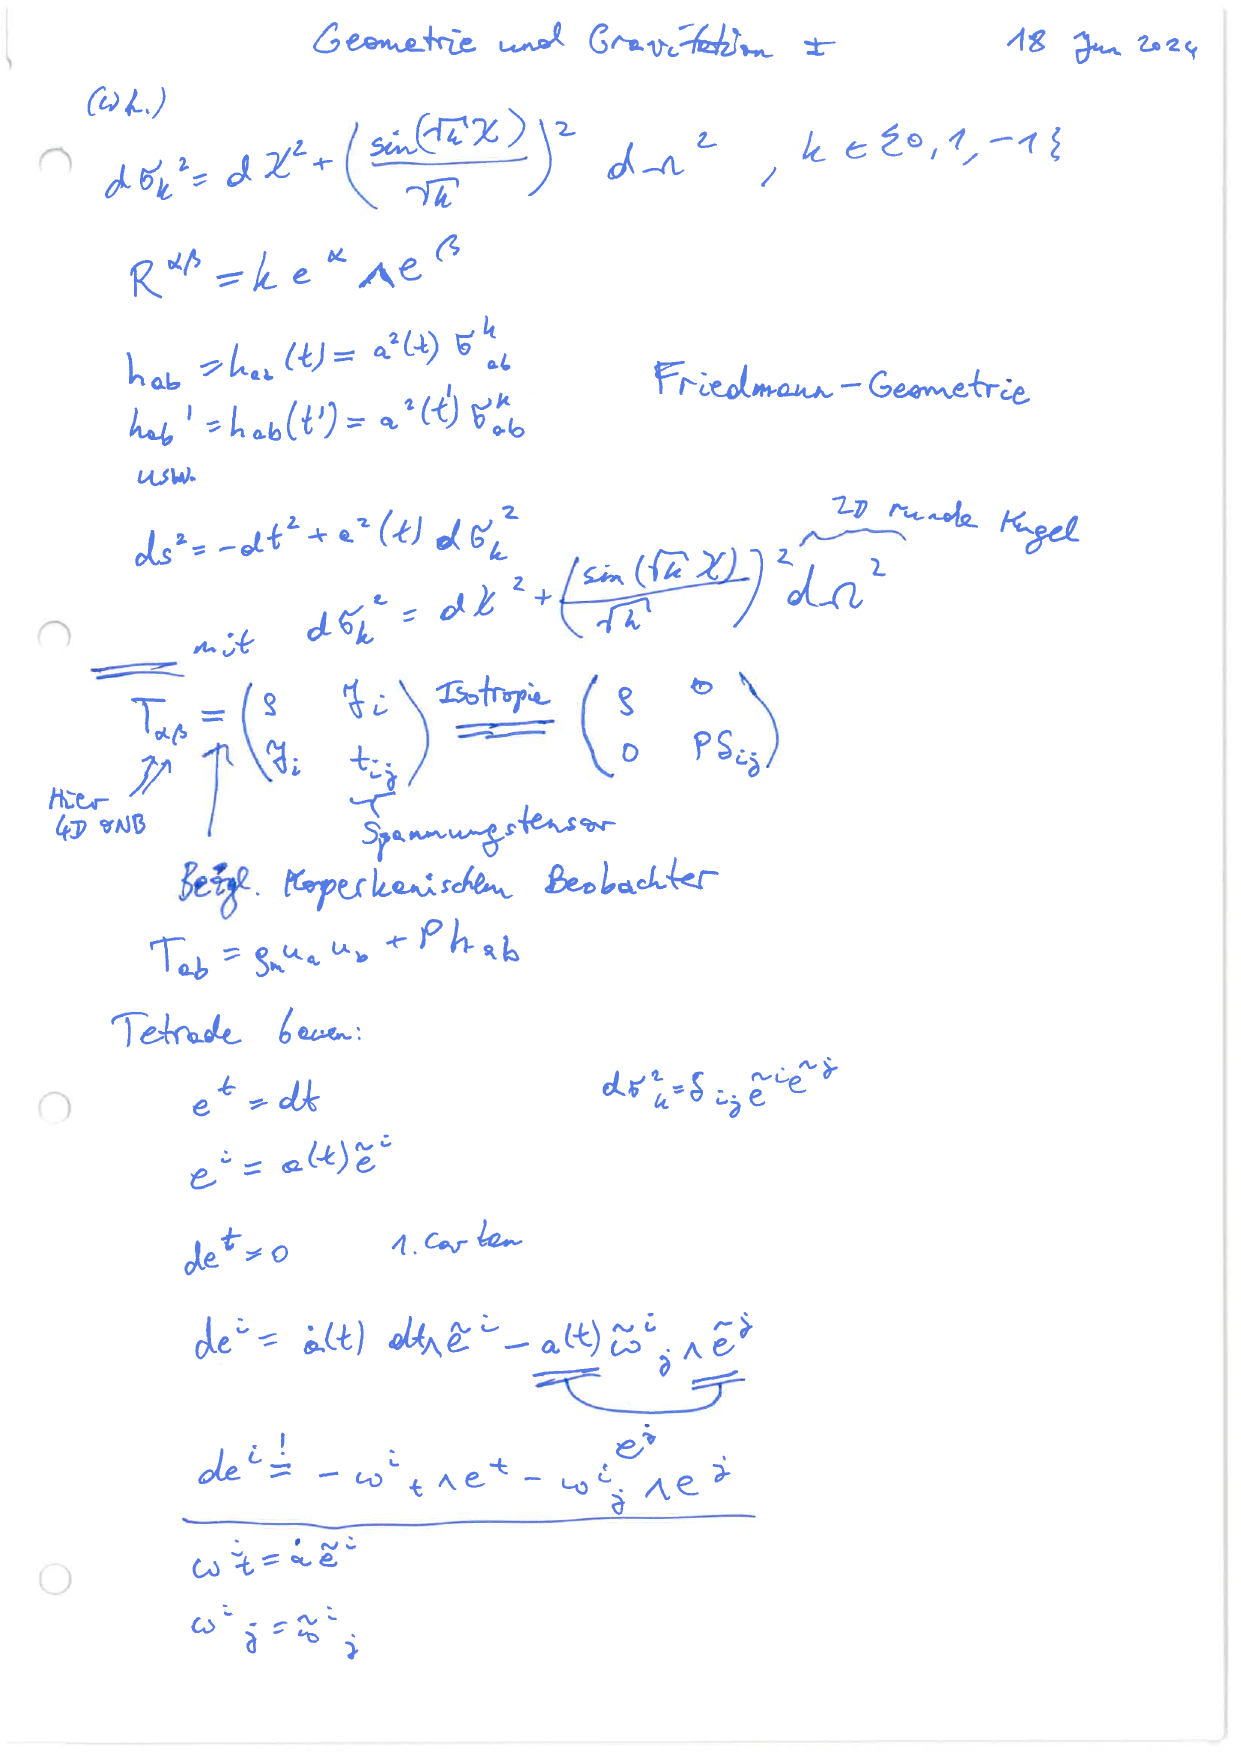 Geometrie und Gravitation I 18 Jun 2024
(Wh.)
dσ_k² = dχ² + (sin(√k χ)/√k)² dΩ², k ∈ {0, 1, -1}
R^{αβ} = k e^α ∧ e^β
h_ab = h_ab(t) = a²(t) σ^k_ab
h_ab' = h_ab(t') = a²(t') σ^k_ab
Friedmann-Geometrie
usw.
2D runde Kugel
ds² = -dt² + a²(t) dσ_k²
mit dσ_k² = dχ² + (sin(√k χ)/√k)² dΩ²
T_αβ = (ρ J_i ; J_i t_ij) Isotropie = (ρ 0 ; 0 Pδ_ij)
Hier
4D ONB
Spannungstensor
Bezgl. Koperkanischem Beobachter
T_ab = ρ_m u_a u_b + P h_ab
Tetrade bauen:
e^t = dt dσ_k² = δ_ij ẽ^i ẽ^j
e^i = a(t) ẽ^i
de^t = 0 1. Cartan
de^i = ȧ(t) dt ∧ ẽ^i - a(t) ω̃^i_j ∧ ẽ^j
e^j
de^i != - ω^i_t ∧ e^t - ω^i_j ∧ e^j
ω^i_t = ȧ ẽ^i
ω^i_j = ω̃^i_j